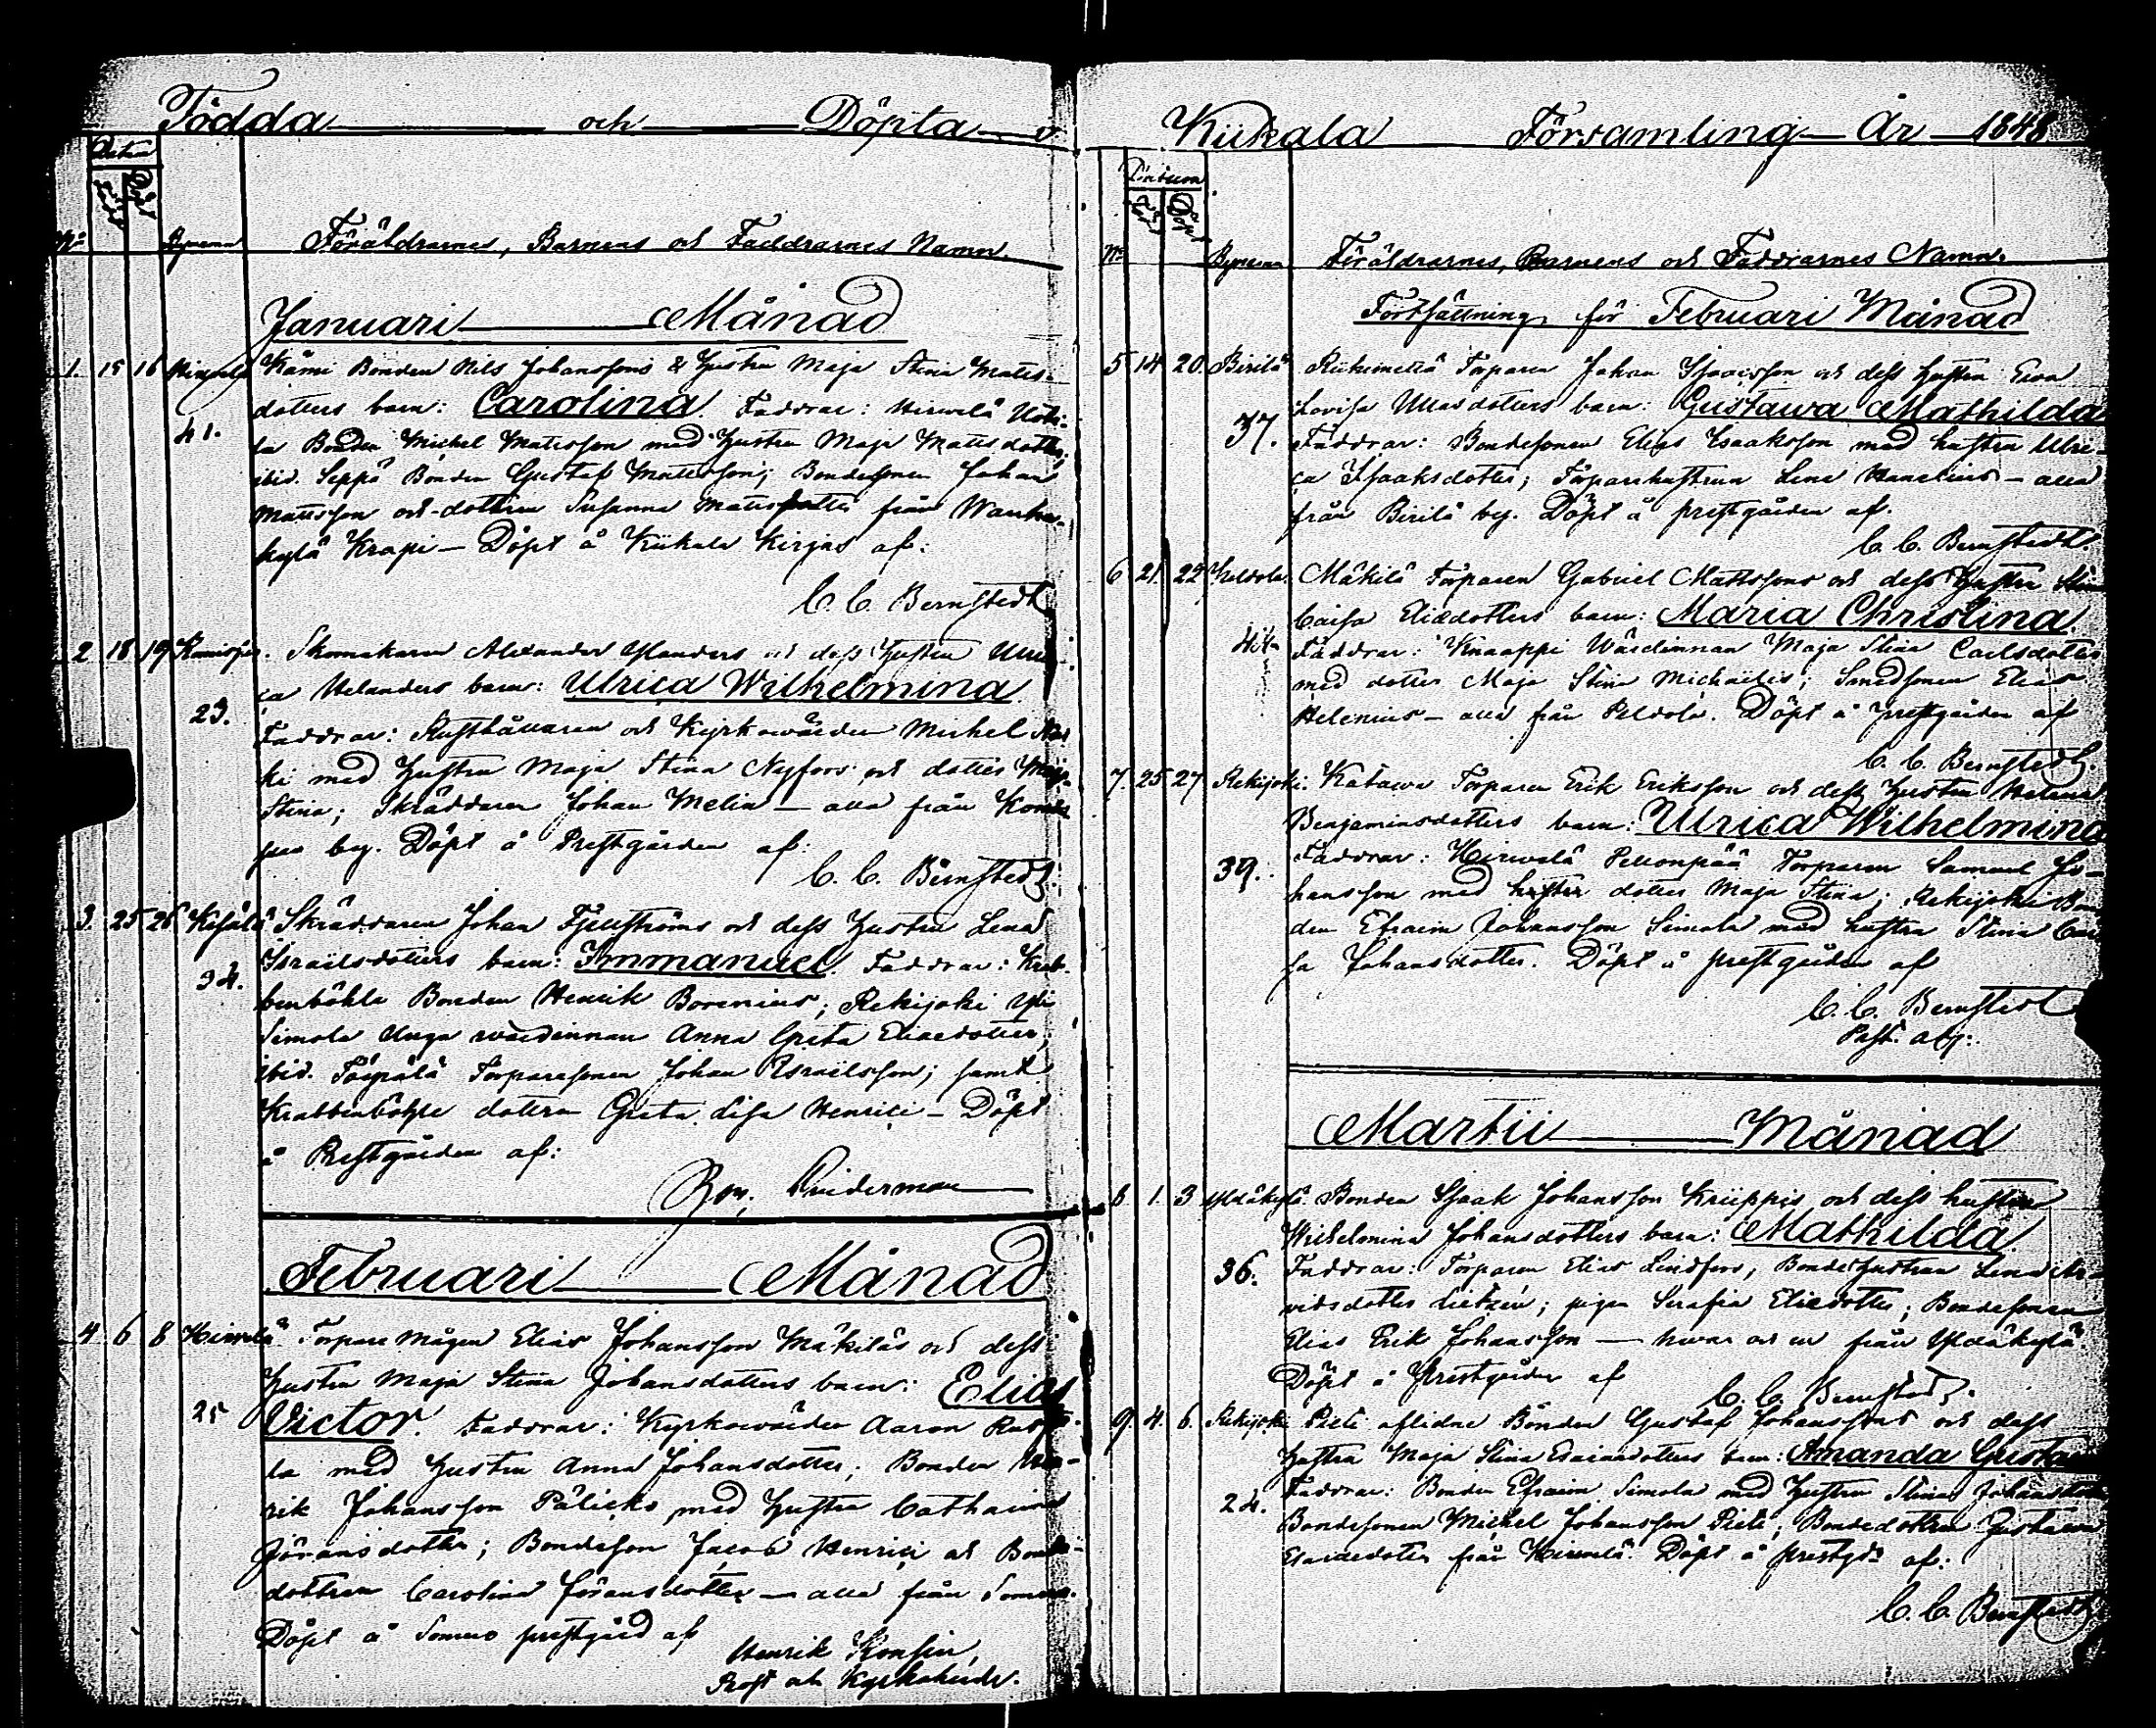 Födda och Döpta
Datum
Född Döpt
No Byarna Föräldrarnes, Barnens och Faddrarnes Namn.
Januari Månad
1. 15 16 Kämi Bonden Nils Johanssons & Hustru Maja Stina Matts-
dotters barn: Carolina. Faddrar: Hirvelä
41. Bonden Michel Mattsson med Hustru Maja Mattsdotter;
ibid. Seppä Bonden Gustaf Mattsson; Bondesonen Johan
Mattsson och dottren Susanna Mattsdotter från Wanha-
kylä Krapi — Döpt å Kiikala af:
C. C. Bernstedt
2 18 19 Skomakaren Alexander och dess Hustru Ulri-
ca Helanders barn: Ulrica Wilhelmina.
23. Faddrar: och Kyrkovärden Michel
ki med Hustru Maja Stina Nyfors och dotter Maja
Stina; Skräddaren Johan Melin — alla från
by. Döpt å Prestgården af:
C. C. Bernstedt
3. 25 26 Skräddaren Johan Fjellströms och dess Hustru Lena
Israelsdotters barn: Immanuel. Faddrar: Krab-
34. benböhle Bonden Henrik Borenius; Rekijoki Yli
Simola unga wärdinnan Anna Greta Eliaedotter;
ibid. Torparesonen Johan Israelsson; samt
Krabbenböhle dottern Greta Lisa Henrici — Döpt
å Prestgården af:
Februari Månad
4 6 8 Hirvelä Torpare Mågen Elias Johansson Mäkiläs och dess
Hustru Maja Stina Johansdotters barn: Elias
25 Victor. Faddrar: Kyrkovärden Aaron
la med Hustru Anna Johansdotter; Bonden Hen-
rik Johansson med Hustru Catharina
Göransdotter; Bondeson Jacob Henrici och Bonde-
dottren Carolina Göransdotter — alla från Somero.
Döpt å Somero prestgård af
Henrik
Prost och Kyrkoherde.
Kiikala Församling År 1848
Datum
Född Döpt
No Byarna Föräldrarnes, Barnens och Faddrarnes Namn.
Fortsättning för Februari Månad
5 14 20. Pirilä Riihimetsä Torparen Johan Isaacsson och dess hustru Eva
Lovisa Ullasdotters barn: Gustawa Mathilda
37. Faddrar: Bondesonen Elias Esaaksson med hustru Ulri-
ca Isaaksdotter; Torparehustrun Lena — alla
från Pirilä by. Döpt å prestgården af.
C. C. Bernstedt.
6 21. 22 Peldola. Mäkilä Torparen Gabriel Mattssons och dess Hustru
Caisa Eliædotters barn: Maria Christina.
Faddrar: Knaappi Wärdinnan Maja Stina Carlsdotter
med dotter Maja Stina Michaelis; Smedsonen Elias
Helenius — alla från Peldola. Döpt å prestgården af
C. C. Bernstedt.
7. 25 27 Rekijoki. Torparen Erik Eriksson och dess Hustru Helena
Benjaminsdotters barn: Ulrica Wilhelmina
39. Faddrar: Hirvelä Torparen Samuel Jo-
hansson med dotter Maja Stina; Rekijoki Bon-
den Efraim Johansson Simola med hustru Stina Cai-
sa Johansdotter. Döpt å prestgården af
C. C. Bernstedt
Past. adj:
Martii Månad
8 1. 3 Yldäkylä. Bonden Isaak Johansson Kriippis och dess hustru
Wilhelmina Johansdotters barn: Mathilda.
36. Faddrar: Torparen Elias Lindfors, Bondehustrun Lena
vidsdotter; pigan Serafia Eliædotter; Bondesonen
Elias Erik Johansson — från Yldäkylä.
Döpt å Prestgården af
C. C. Bernstedt.
9. 4. 6. Rekijoki Pieti aflidne Bonden Gustaf Johanssons och dess
Hustru Maja Stina Esaiaedotters barn: Amanda
24. Faddrar: Bonden Efraim Simola med Hustru Stina Johansdotter
Bondesonen Michel Johansson Pieti; Bondedottren Gustava
från Hirvelä. Döpt å af:
C. C. Bernstedt